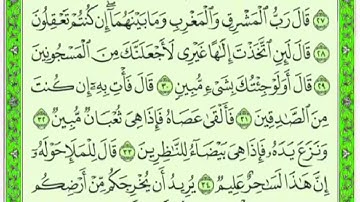 ٢٧ قَالَ رَبُّ ٱلۡمَشۡرِقِ وَٱلۡمَغۡرِبِ وَمَا بَيۡنَهُمَآۖ إِن كُنتُمۡ تَعۡقِلُونَ
٢٨ قَالَ لَئِنِ ٱتَّخَذۡتَ إِلَٰهًا غَيۡرِي لَأَجۡعَلَنَّكَ مِنَ ٱلۡمَسۡجُونِينَ
٢٩ قَالَ أَوَلَوۡ جِئۡتُكَ بِشَيۡءٖ مُّبِينٖ ٣٠ قَالَ فَأۡتِ بِهِۦٓ إِن كُنتَ
مِنَ ٱلصَّٰدِقِينَ ٣١ فَأَلۡقَىٰ عَصَاهُ فَإِذَا هِيَ ثُعۡبَانٞ مُّبِينٞ ٣٢
وَنَزَعَ يَدَهُۥ فَإِذَا هِيَ بَيۡضَآءُ لِلنَّٰظِرِينَ ٣٣ قَالَ لِلۡمَلَإِ حَوۡلَهُۥٓ
إِنَّ هَٰذَا لَسَٰحِرٌ عَلِيمٞ ٣٤ يُرِيدُ أَن يُخۡرِجَكُم مِّنۡ أَرۡضِكُم